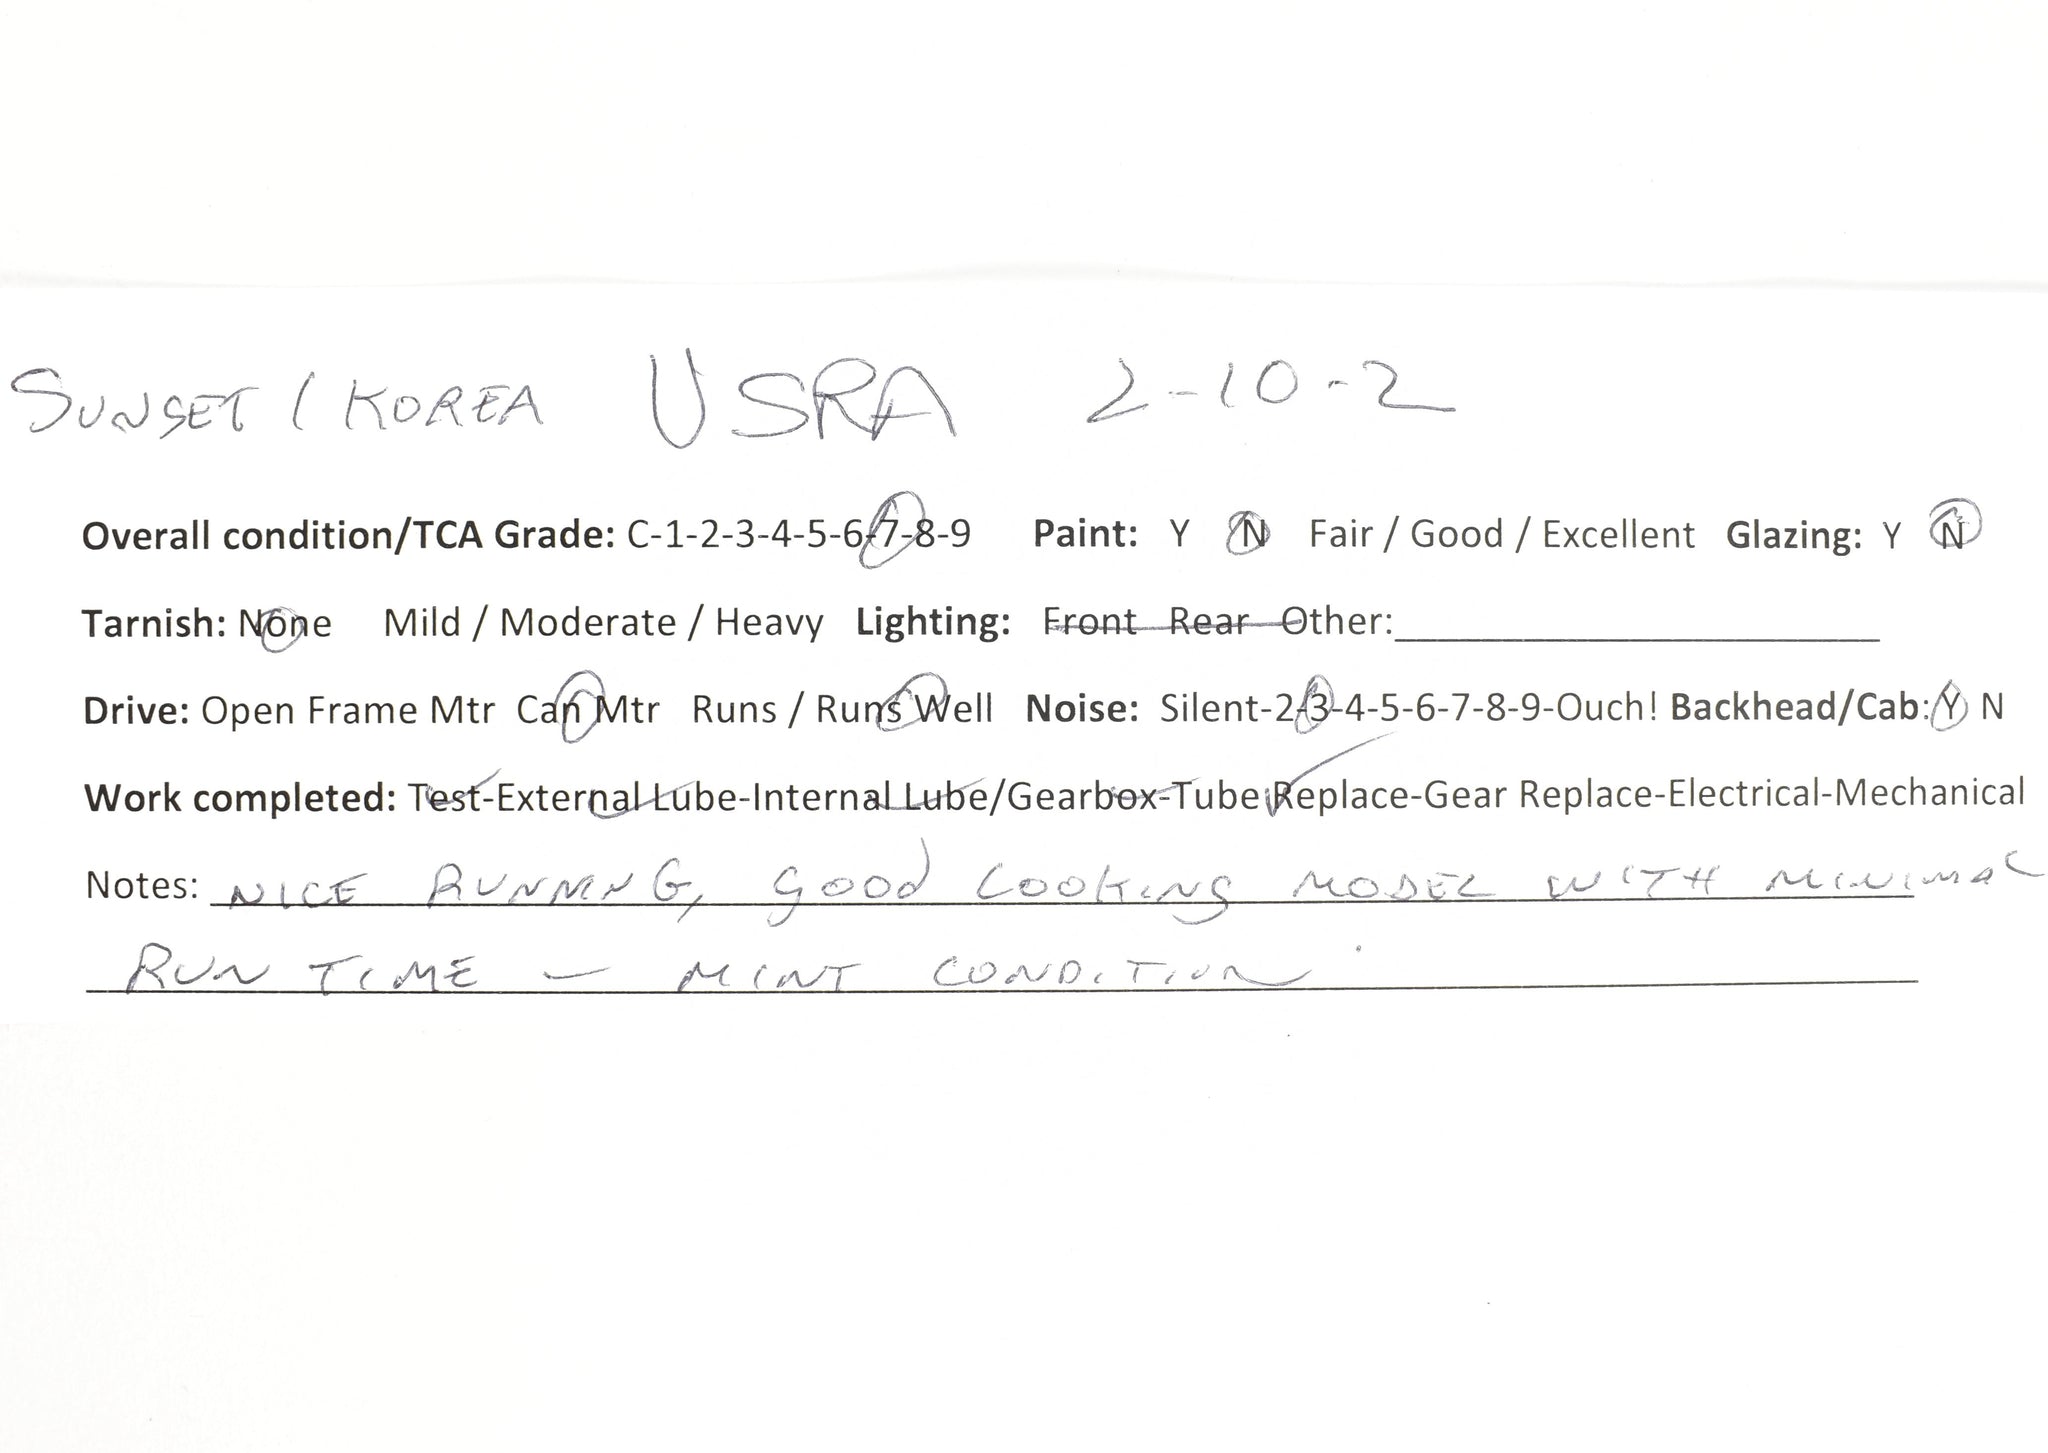 SUNSET / KOREA USRA 2-10-2
Overall condition/TCA Grade: C-1-2-3-4-5-6-7-8-9 Paint: Y N Fair / Good / Excellent Glazing: Y N
Tarnish: None Mild / Moderate / Heavy Lighting: Front Rear Other:
Drive: Open Frame Mtr Can Mtr Runs / Runs Well Noise: Silent-2-3-4-5-6-7-8-9-Ouch! Backhead/Cab: Y N
Work completed: Test-External Lube-Internal Lube/Gearbox-Tube Replace-Gear Replace-Electrical-Mechanical
Notes: NICE RUNNING, GOOD LOOKING MODEL WITH MINIMAL
RUN TIME - MINT CONDITION